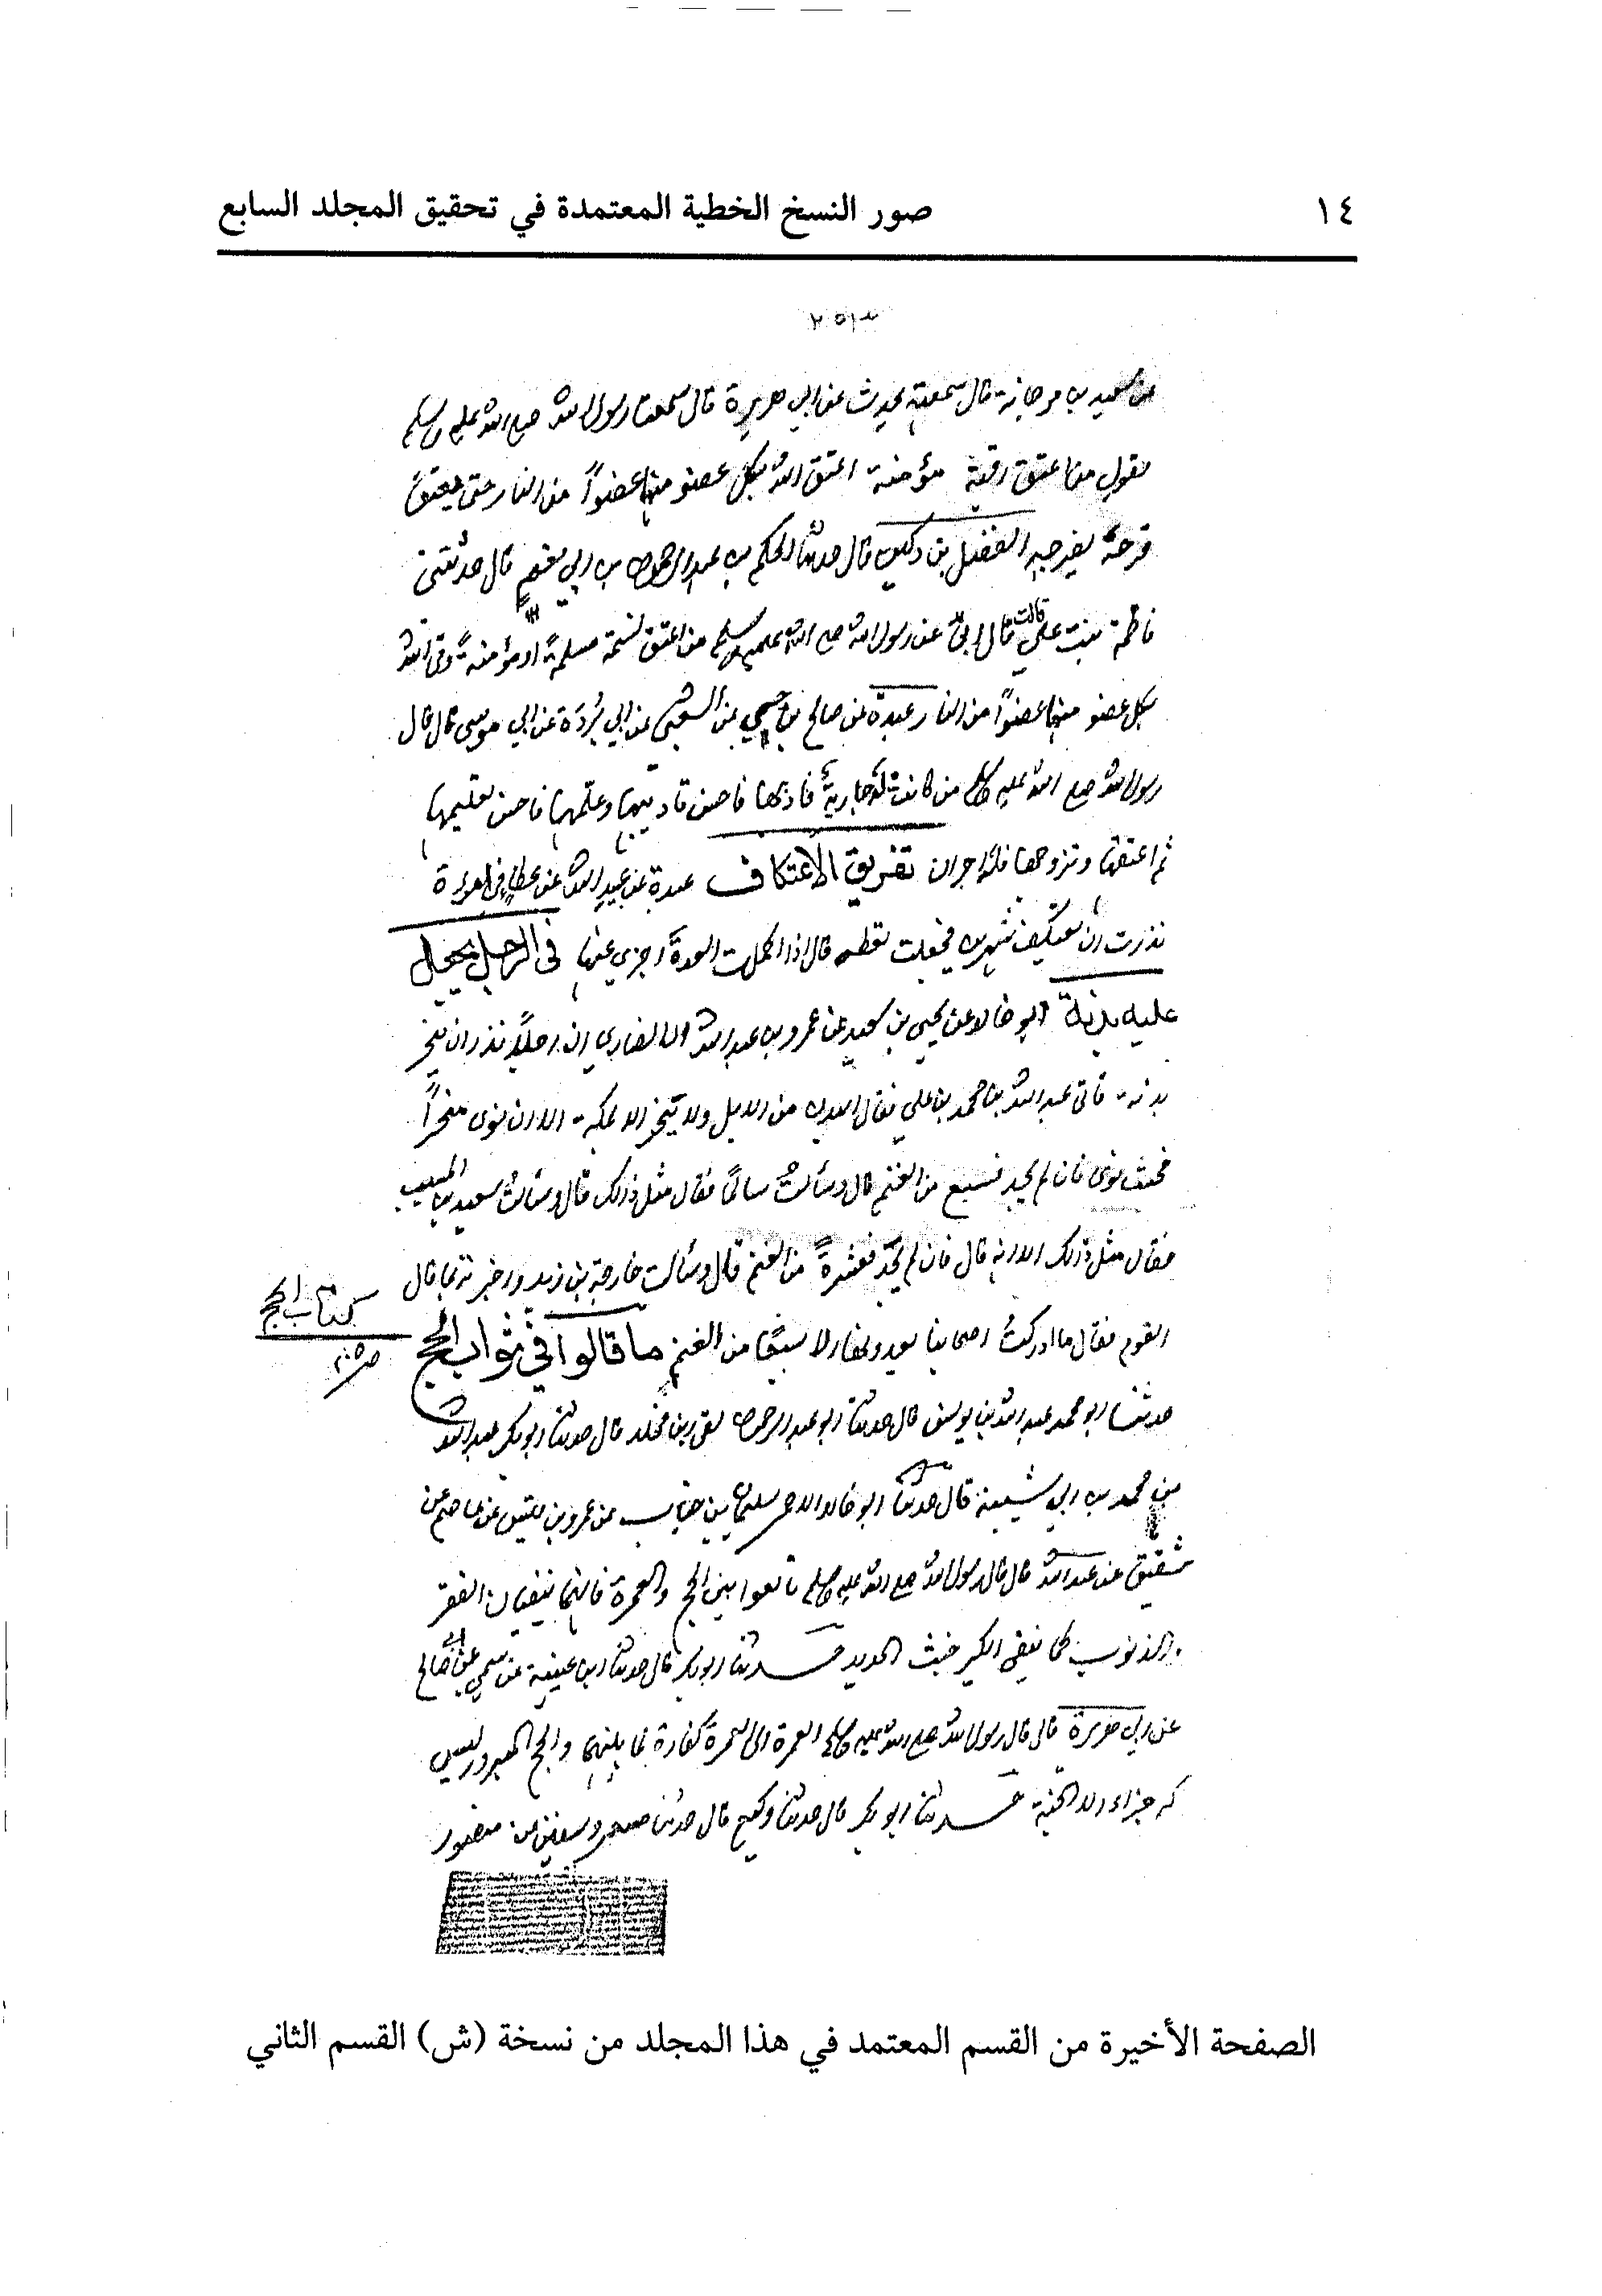 ١٤
صور النسخ الخطية المعتمدة في تحقيق المجلد السابع
عن سعيد بن مرجانة قال سمعته يحدث عن ابي هريرة قال سمعت رسول الله صلى الله عليه وسلم
يقول من اعتق رقبة مؤمنة اعتق الله بكل عضو منها عضواً من النار حتى يعتق
فرجه بفرجه الفضل بن دكين قال حدثنا الحكم بن عبد الرحمن بن ابي نعم قال حدثتني
فاطمة بنت علي قالت قال ابي عن رسول الله صلى الله عليه وسلم من اعتق نسمة مسلمة او مؤمنة وقى الله
بكل عضو منها عضواً من النار عبدة عن صالح بن حيي عن الشعبي عن ابي بردة عن ابي موسى قال قال
رسول الله صلى الله عليه وسلم من كانت له جارية فادبها فاحسن تاديبها وعلمها فاحسن تعليمها
ثم اعتقها وتزوجها فله اجران تفريق الاعتكاف عبدة عن عبد الله عن عطا في امرءة
نذرت ان تعتكف شهرين فجعلت تقطعه قال اذا اكملت العدة اجزى عنها في الرجل يجعل
عليه بدنة ابو خالد عن يحيى بن سعيد عن عمرو بن عبد الله الانصاري ان رجلاً نذر ان ينحر
بدنة فاتى عبد الله بن محمد بن علي فقال البدن من الابل ولا تنحر الا بمكة الا ان نوى منحراً
فحيث نوى فان لم يجد فسبع من الغنم قال وسألت سالماً فقال مثل ذلك قال وسألت سعيد بن المسيب
فقال مثل ذلك الا انه قال فان لم يجد فعشرة من الغنم قال وسألت خارجة بن زيد واخبرته بما قال
القوم فقال ما ادركت اصحابنا يعدونها الا سبعاً من الغنم ما قالوا في ثواب الحج
كتاب الحج
حدثنا ابو محمد عبد الله بن يونس قال حدثنا ابو عبد الرحمن بقي بن مخلد قال حدثنا ابو بكر عبد الله
بن محمد بن ابي شيبة قال حدثنا ابو خالد الاحمر سليمان بن حيان عن عمرو بن قيس عن عاصم عن
شقيق عن عبد الله قال قال رسول الله صلى الله عليه وسلم تابعوا بين الحج والعمرة فانهما ينفيان الفقر
والذنوب كما ينفي الكير خبث الحديد حدثنا ابو بكر قال حدثنا ابن عيينة عن سمي عن ابي صالح
عن ابي هريرة قال قال رسول الله صلى الله عليه وسلم العمرة الى العمرة كفارة لما بينهما والحج المبرور ليس
له جزاء الا الجنة حدثنا ابو بكر قال حدثنا وكيع قال حدثنا مسعر وسفين عن منصور
الصفحة الأخيرة من القسم المعتمد في هذا المجلد من نسخة (ش) القسم الثاني